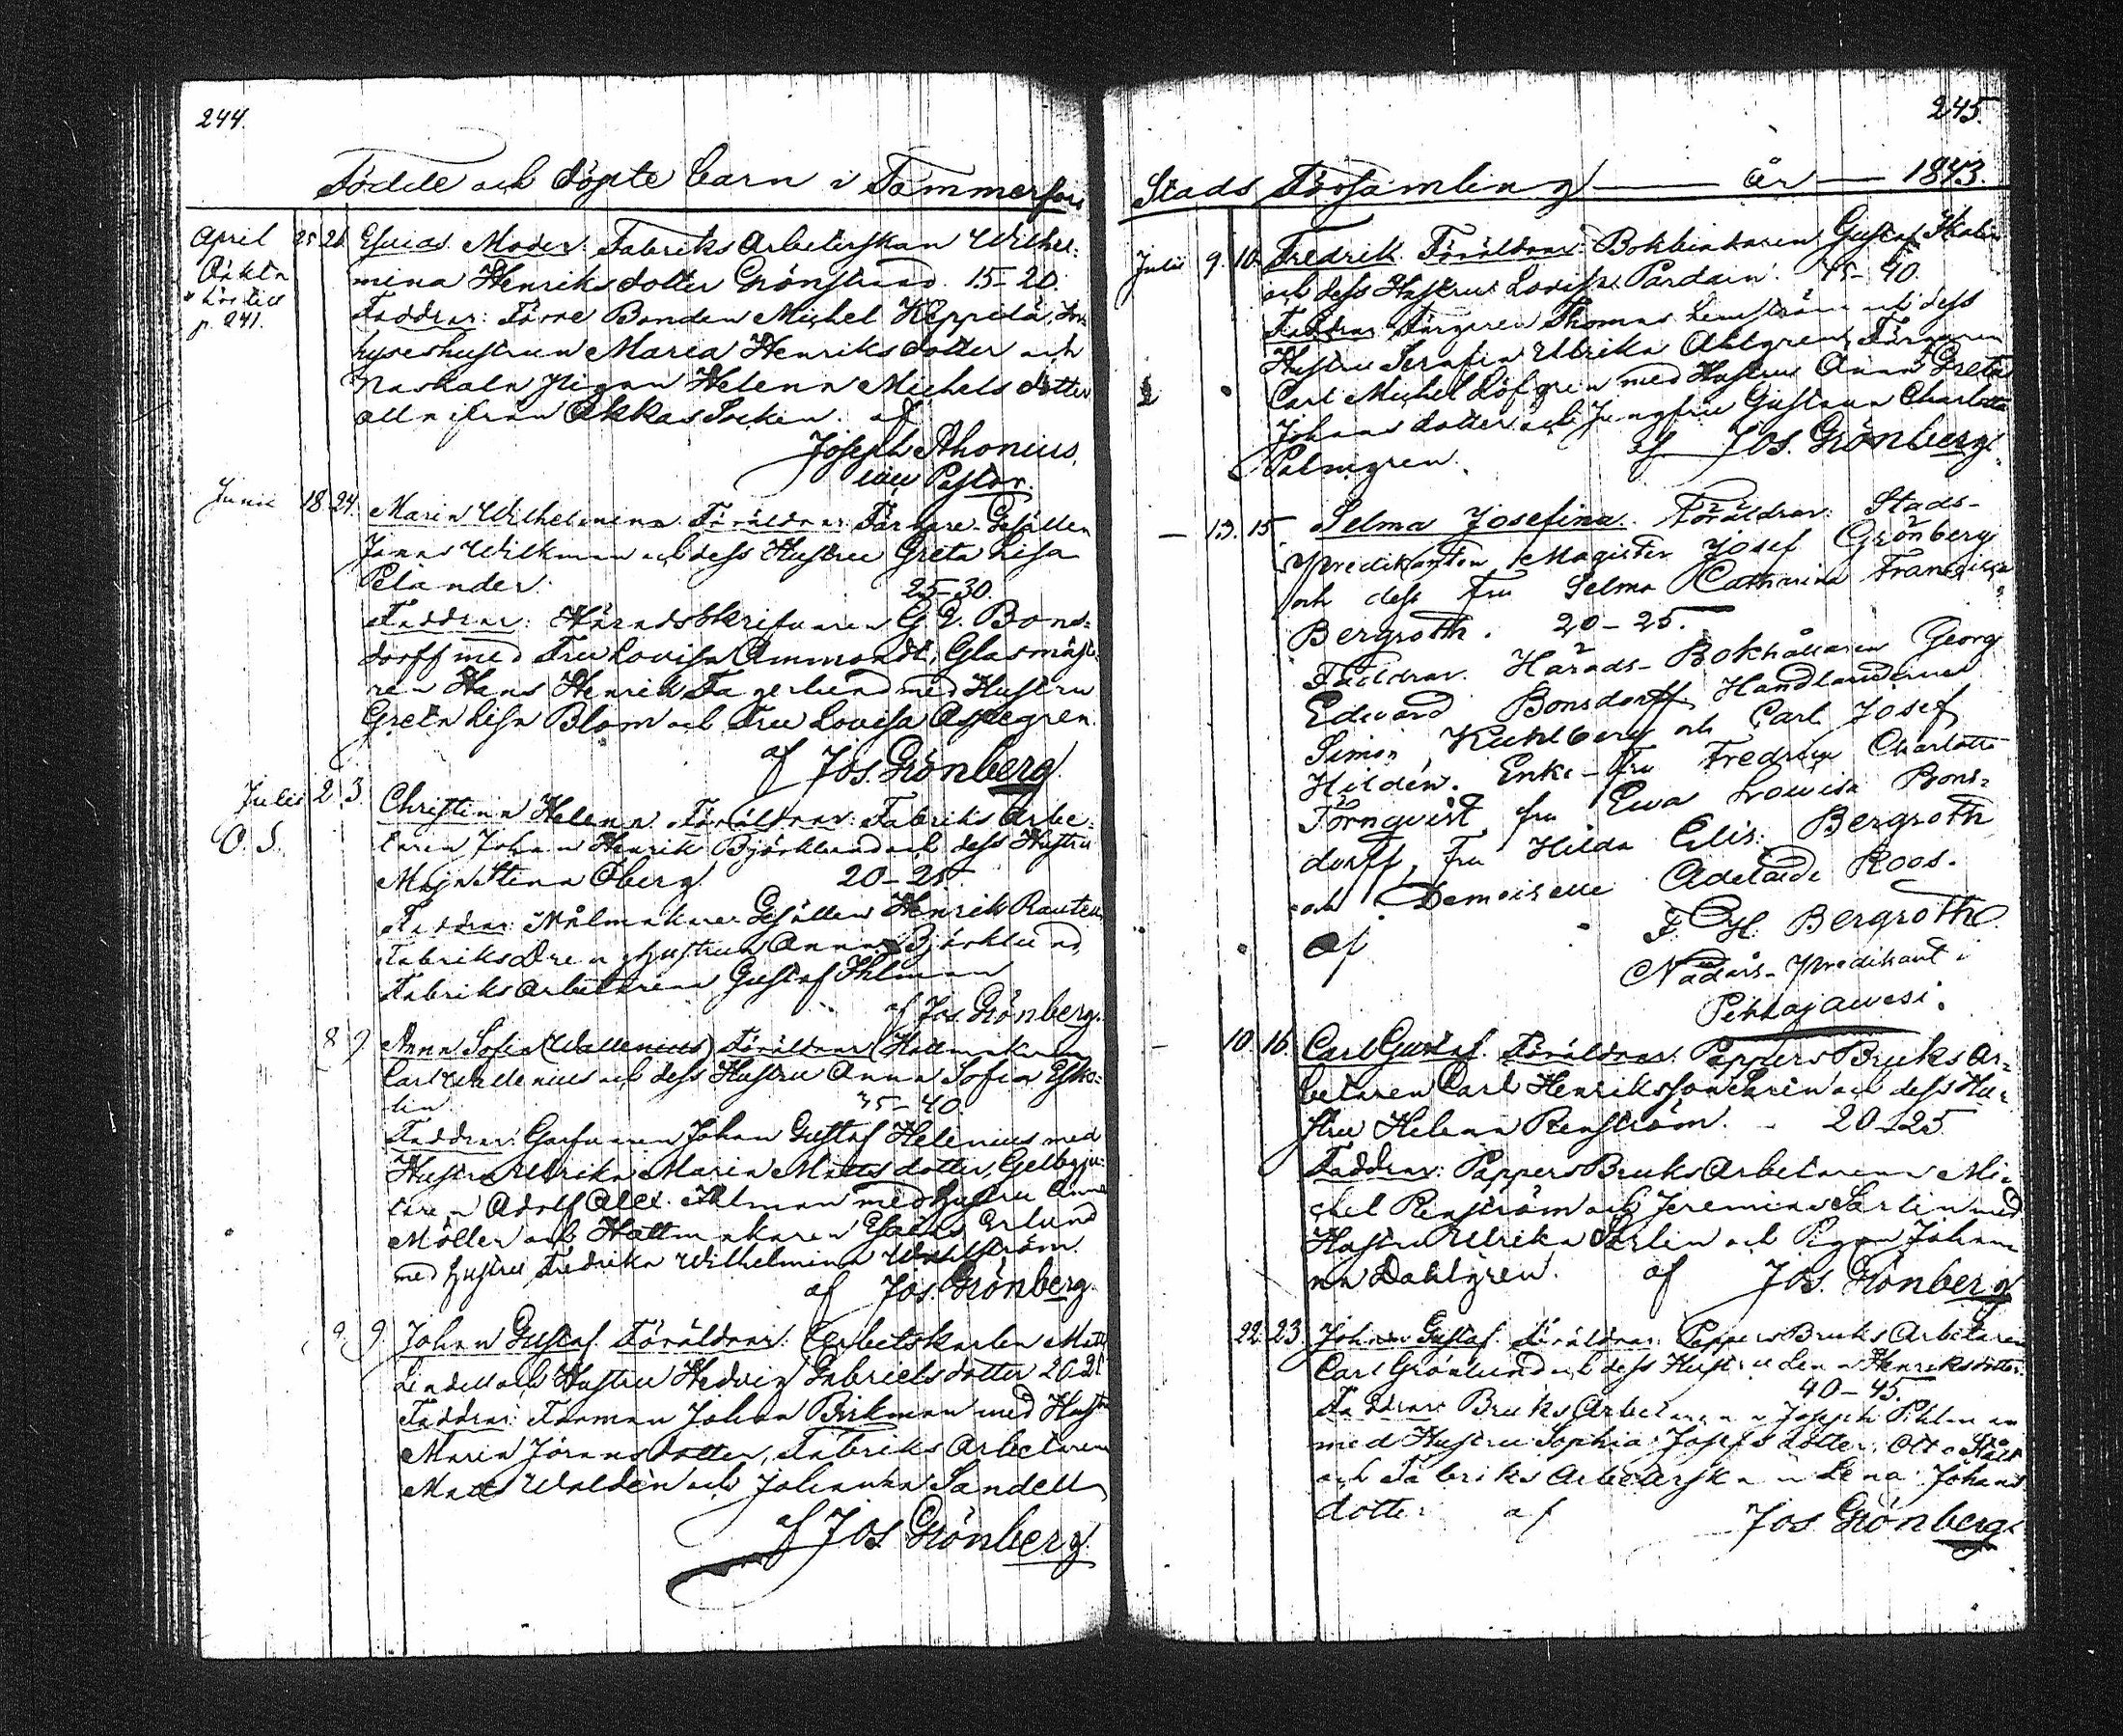 244.
Födde och Döpte Barn i Tammerfors
April 25 26 Esaias. Moder: Fabriks Arbeterskan Wilhel-
Oäkta
mina Henriksdotter Grönstrand. 15-20.
p. 241.
Faddrar: Förre Bonden Michel Keppilä, In-
hyseshustrun Maria Henriksdotter och
Pigan Helena Michelsdotter
alla ifrån Akkas Socken. af
Joseph Ahonius,
vice Pastor.
Junii 18 24. Maria Wilhelmina. Föräldrar: Färgare Gesällen
Jonas Wikman och dess Hustru Greta Lisa
Pelander. 25-30.
Faddrar: Häradsskrifvaren G. E. Bons-
dorff med Fru Lovisa Ammondt, Glasmäst-
ren Hans Henrik Fagerlund med Hustru
Greta Lisa Blom och Fru Lovisa Aspegren.
af Jos. Grönberg.
Julii 2 3. Christina Helena. Föräldrar: Fabriks Arbe-
O. S.
taren Johan Henrik Björklund och dess Hustru
Maja Stina Öberg. 20-25.
Faddrar: Målmakare Gesällen Henrik Rautell,
Fabriks Dreng hustrun Anna Björklund,
Fabriks arbetaren Gustaf Ihlman
af Jos. Grönberg.
8 9 Anna Sofia (Wallenius) Föräldrar: Hattmakaren
Carl Wallenius och dess Hustru Anna Sofia Esko-
lin 35-40
Faddrar: Garfvaren Johan Gustaf Helenius med
Hustru Ulrika Maria Mattsdotter, Gelbgju-
taren Adolf Alex. Ihlman med hustru Anna
Möller och Hattmakaren Esaias Erlund
med hustru Fredrika Wilhelmina Wahlström.
af Jos. Grönberg.
9. 9. Johan Gustaf. Föräldrar: Arbetskarlen Matts
Lindell och Hustru Hedvig Gabrielsdotter 20-25
Faddrar: Formen Johan Birkman med Hustr
Maria Jöransdotter, Fabriks Arbetaren
Matts Waldén och Johanna Sandell
af Jos Grönberg.
245.
Stads Församling år 1843.
Julii 9. 10. Fredrik. Föräldrar: Bokbindaren Gustaf
och dess Hustru Lovisa Pardain. 35-40.
Faddrar: Färgaren Thomas Lindström och dess
Hustru Serafia Ulrika Ahlgren, Färgaren
Carl Michel Löfgren med Hustru Anna Greta
Johansdotter och Jungfru Gustava Charlotta
Palmgren. af Jos. Grönberg.
- 13. 15. Selma Josefina. Föräldrar: Stads-
Predikanten Magister Josef Grönberg
och dess Fru Selma Catharina Francisca
Bergroth. 20-25.
Faddrar. Härads-Bokhållaren Georg
Edvard Bonsdorff, Handlanderne
Simon Kuhlberg och Carl Josef
Hildén. Enke-Fru Fredrika Charlotte
Törnqvist, fru Ewa Lowisa Bons-
dorff, Fru Hilda Elis: Bergroth
och Demoiselle Adelaide Roos.
af F. H. Bergroth
Nådårs-Predikant i
Pihlajawesi.
- 10 16. Carl Gustaf. Föräldrar: Pappers Bruks Ar-
betaren Carl Henriksson Ehrén och dess Hu-
stru Helena Renström. 20-25
Faddrar: Pappers Bruks Arbetaren Mi-
chel Renström och Jeremias Sarlin med
Hustru Ulrika Sarlin och Pigan Johan-
na Dahlgren. af Jos. Grönberg
22. 23. Johan Gustaf. Föräldrar: Pappers Bruks Arbetaren
Carl Grönlund och dess Hustru Lena Henriksdotter.
40-45.
Faddrar: Bruks Arbetaren Joseph Pihlman
med Hustru Sophia Josefsdotter, Otto Ståhl
och Fabriks Arbeterskan Lena Johans
dotter af Jos Grönberg.